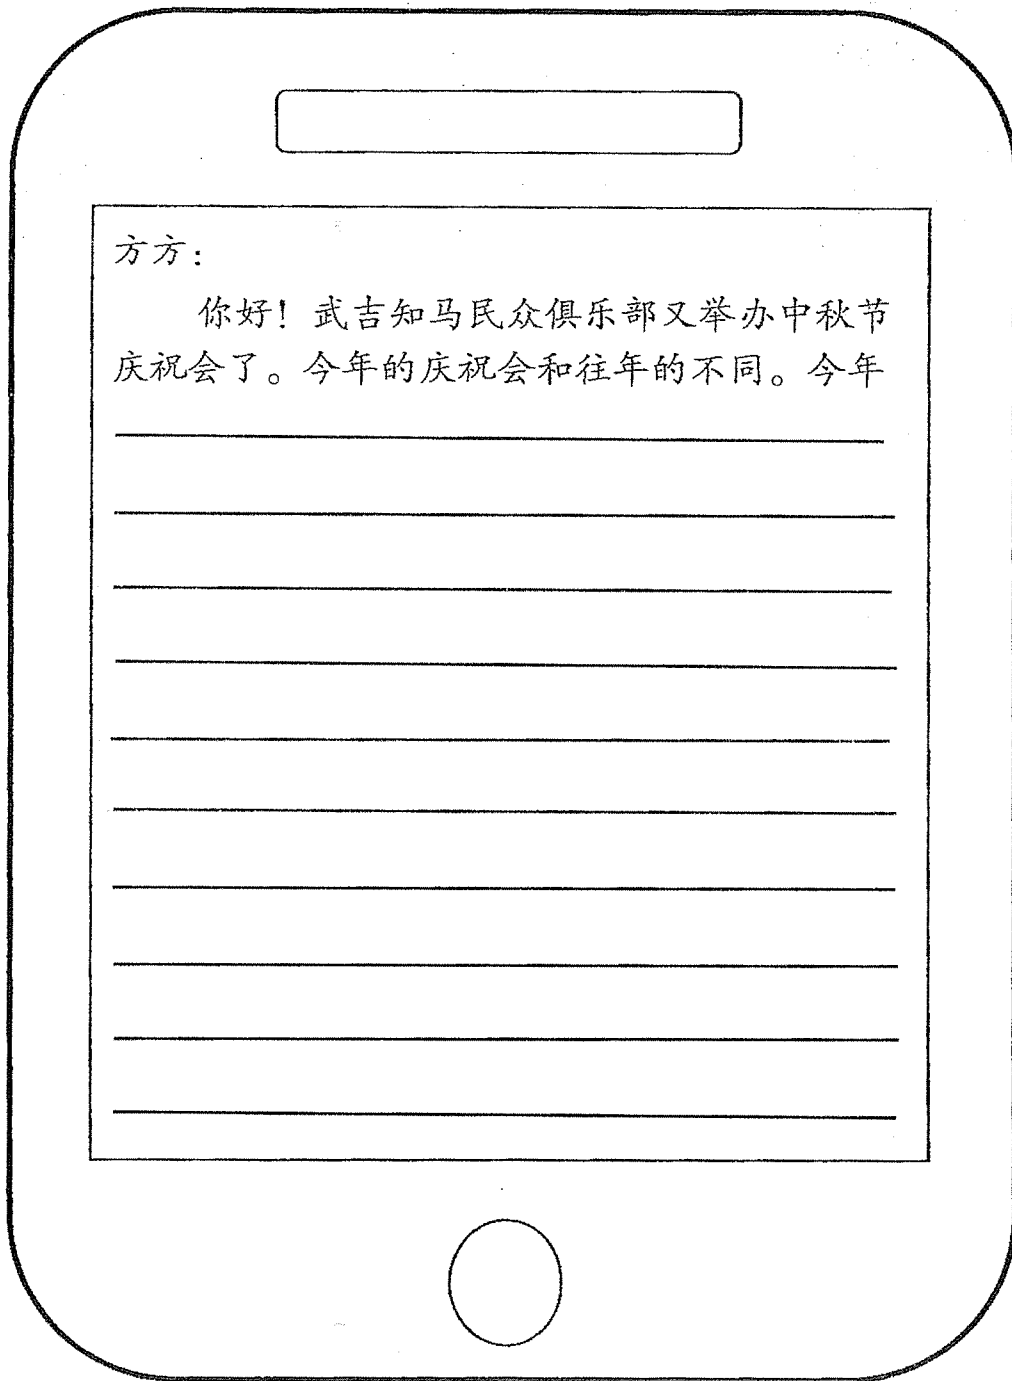 方方：
你好！武吉知马民众俱乐部又举办中秋节
庆祝会了。今年的庆祝会和往年的不同。今年